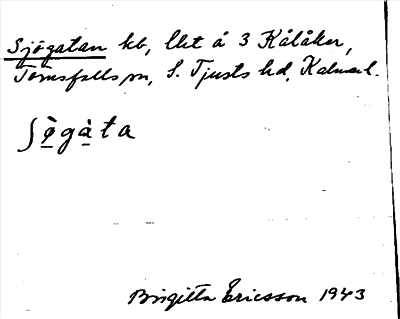 Sjögatan kb, lht å 3 Kålåker,
Törnsfalls sn, S. Tjusts hd, Kalm. l.
ʃø̀gàta
Birgitta Ericsson 1943